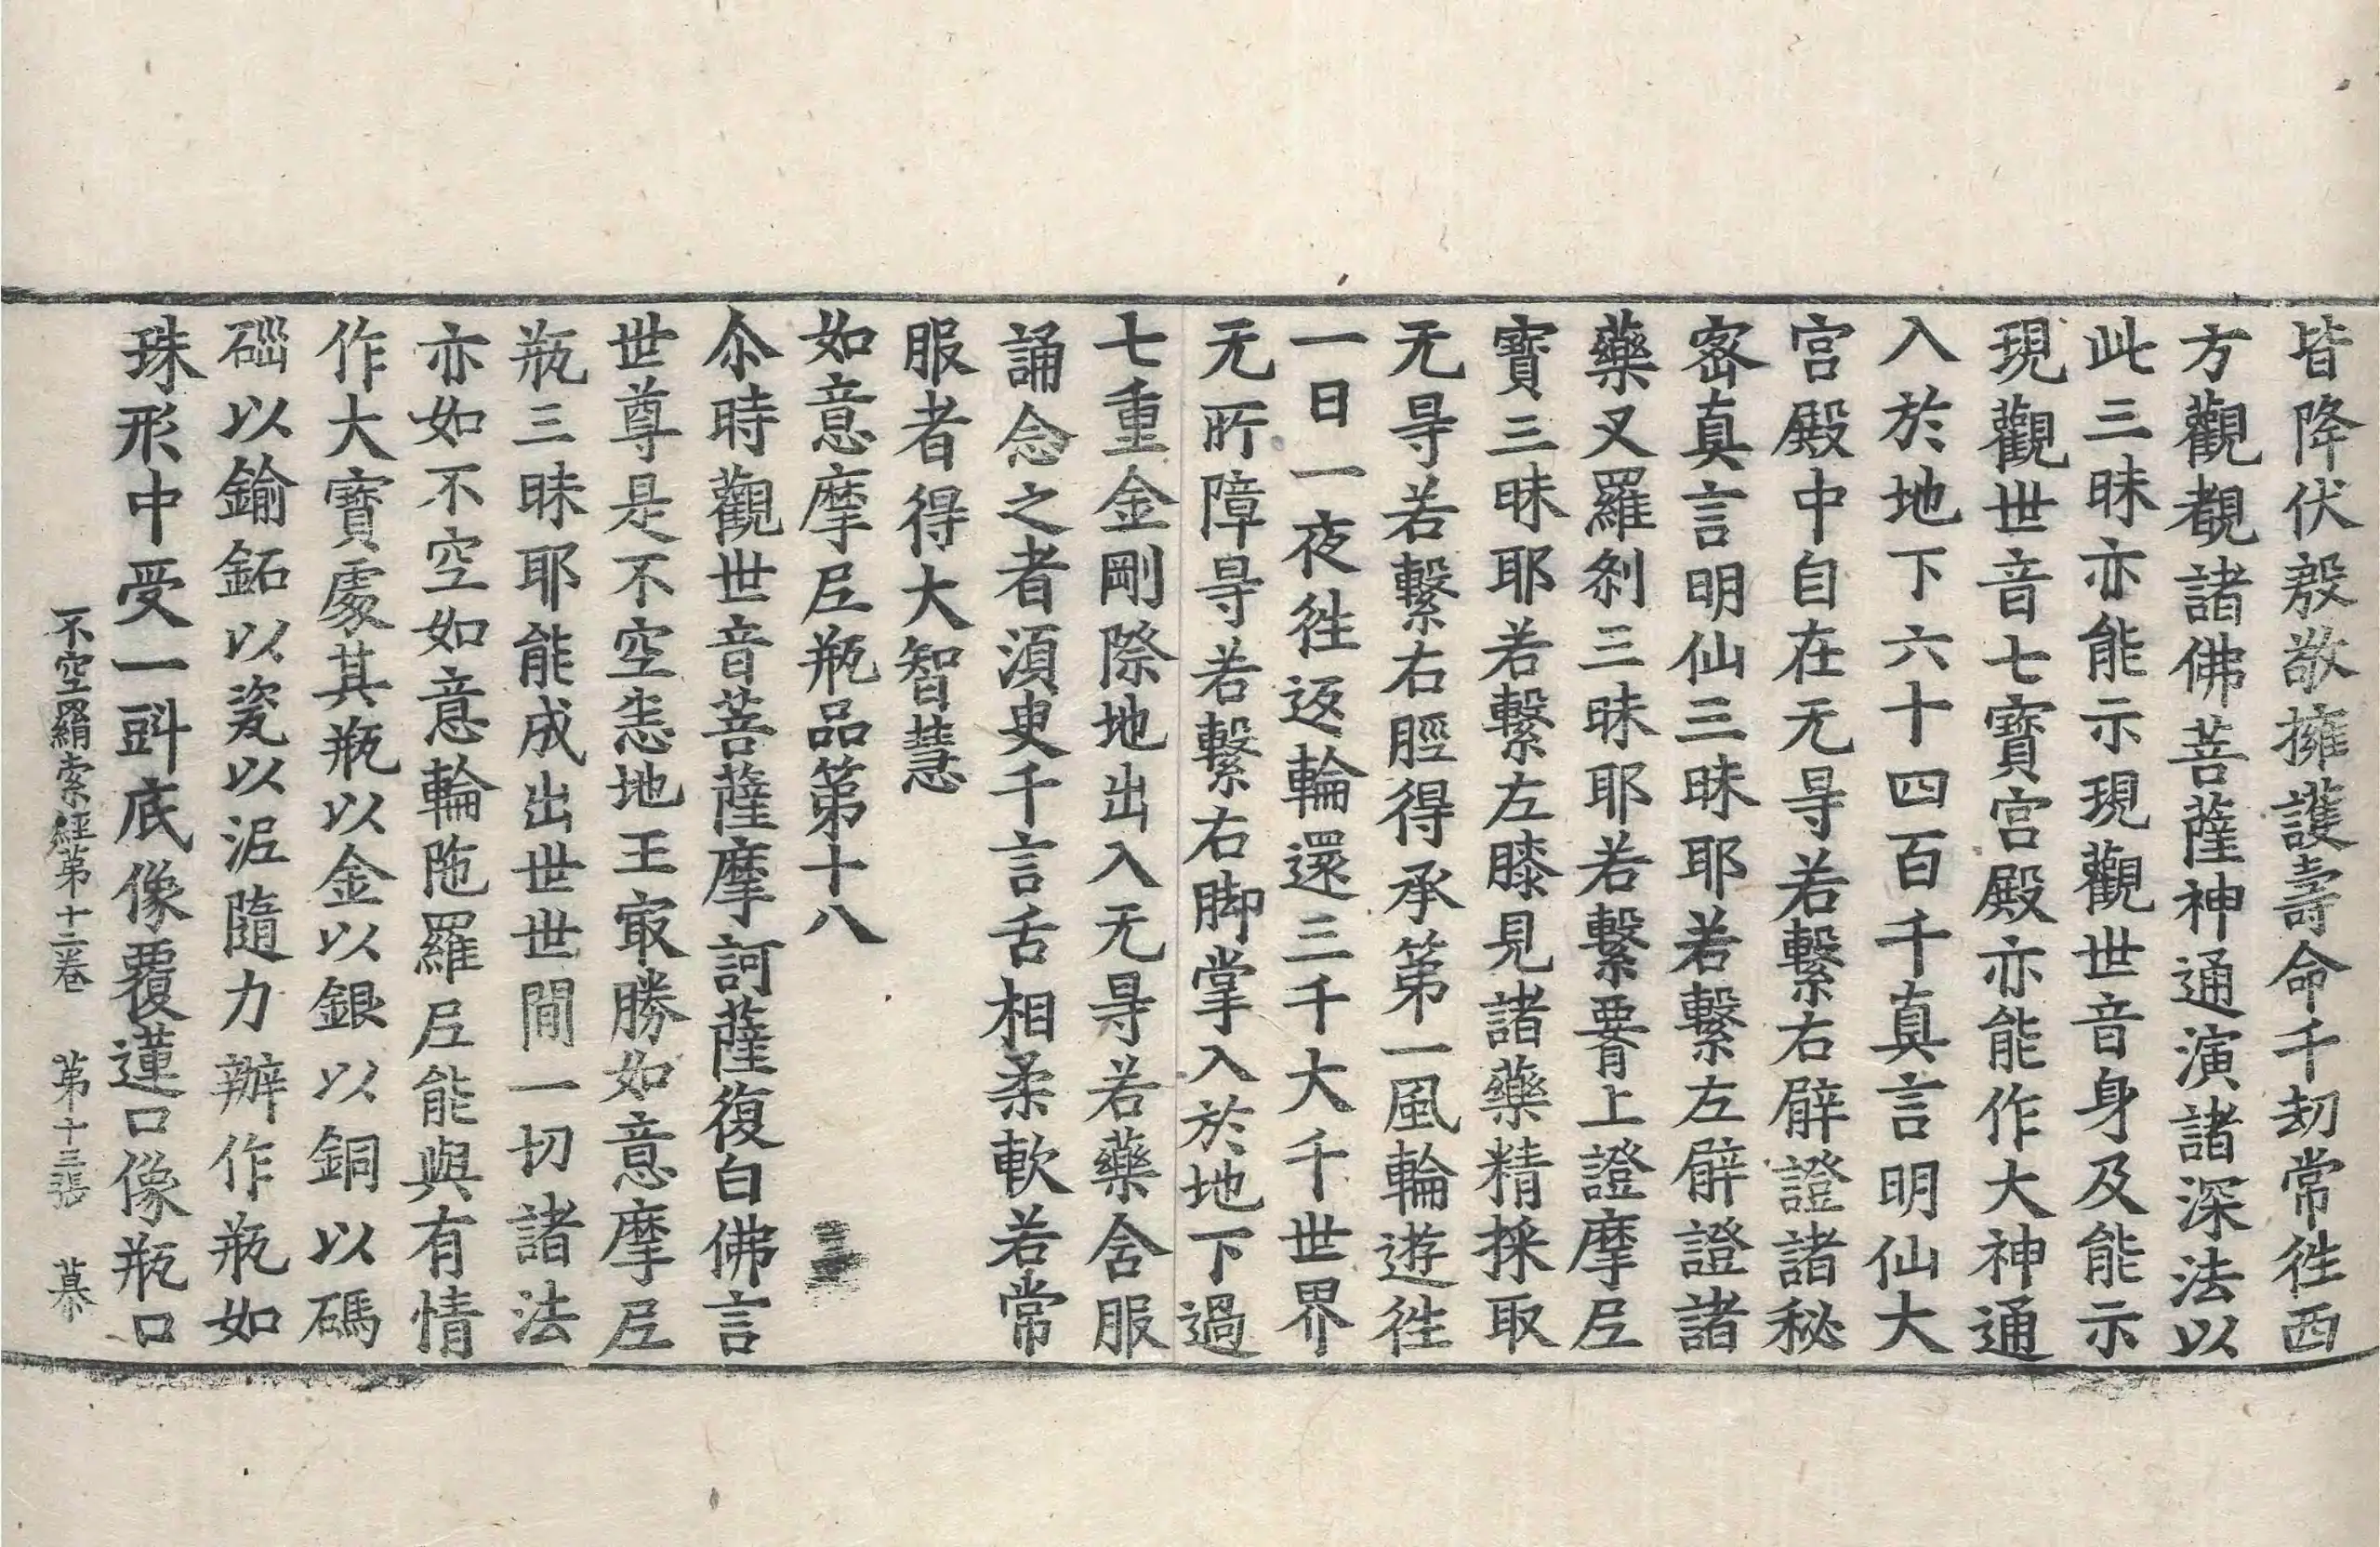 皆降伏殷敬擁護壽命千劫常徃西
方觀覩諸佛菩薩神通演諸深法以
此三昧亦能示現觀世音身及能示
現觀世音七寶宮殿亦能作大神通
入於地下六十四百千真言明仙大
宮殿中自在无㝵若繫右臂證諸秘
密真言明仙三昧耶若繫左臂證諸
藥叉羅刹三昧耶若繫要上證摩尼
寶三昧耶若繫左膝見諸藥精採取
无㝵若繫右脛得承第一風輪遊徃
一日一夜徃返輪還三千大千世界
无所障㝵若繫右脚掌入於地下過
七重金剛際地出入无㝵若藥舍服
誦念之者須臾千言舌相柔軟若常
服者得大智慧
如意摩尼瓶品第十八
尒時觀世音菩薩摩訶薩復白佛言
世尊是不空悉地王㝡勝如意摩尼
瓶三昧耶能成出世世間一切諸法
亦如不空如意輪陁羅尼能與有情
作大寶處其瓶以金以銀以銅以碼
碯以鍮鉐以瓷以泥隨力辦作瓶如
珠形中受一㪷底像覆蓮口像瓶口
不空羂索經第十二卷 第十三張 慕